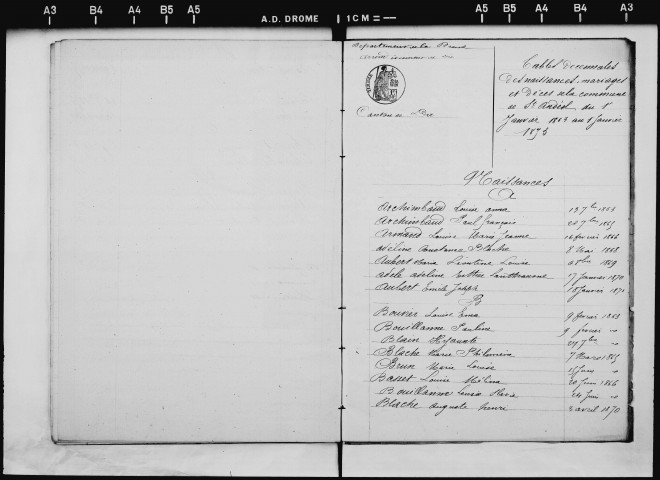 A3 B4 B5 A4 A5 A.D. DROME 1CM A5 B5 A4 B4 A3
Département de la Drome
Canton de Die
Tables Decennales
Des naissances, mariages
et Décès de la commune
de St Andéol du 1er
Janvier 1863 au 1er Janvier
1873
Naissances
A
Archimbaud Louise Anna 13 7bre 1863
Archimbaud Paul François 20 7bre 1865
Armand Louise Marie Jeanne 16 fevrier 1866
Adeline Constance 8 Mai 1868
Aubert Maria Léontine Louise 8bre 1869
Adele Adeline 17 Janvier 1870
Aubert Emile Joseph 18 Janvier 1872
B
Bouvier Louise Ema 9 fevrier 1863
Bouillanne Pauline 9 fevrier "
Blain Hyacinte 27 7bre "
Blache Marie Philomène 7 Mars 1865
Brun Marie Louise 15 Juin "
Basset Louise Mélina 20 Juin 1866
Bouillanne Louise Marie 24 Juin "
Blache Auguste Henri 3 avril 1870
A3 B4 A4 B5 A5 A5 B5 A4 B4 A3